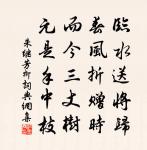 臨水送將歸
春風折贈時
而今三丈樹
元是手中枝
朱繼芳柳詞典網集